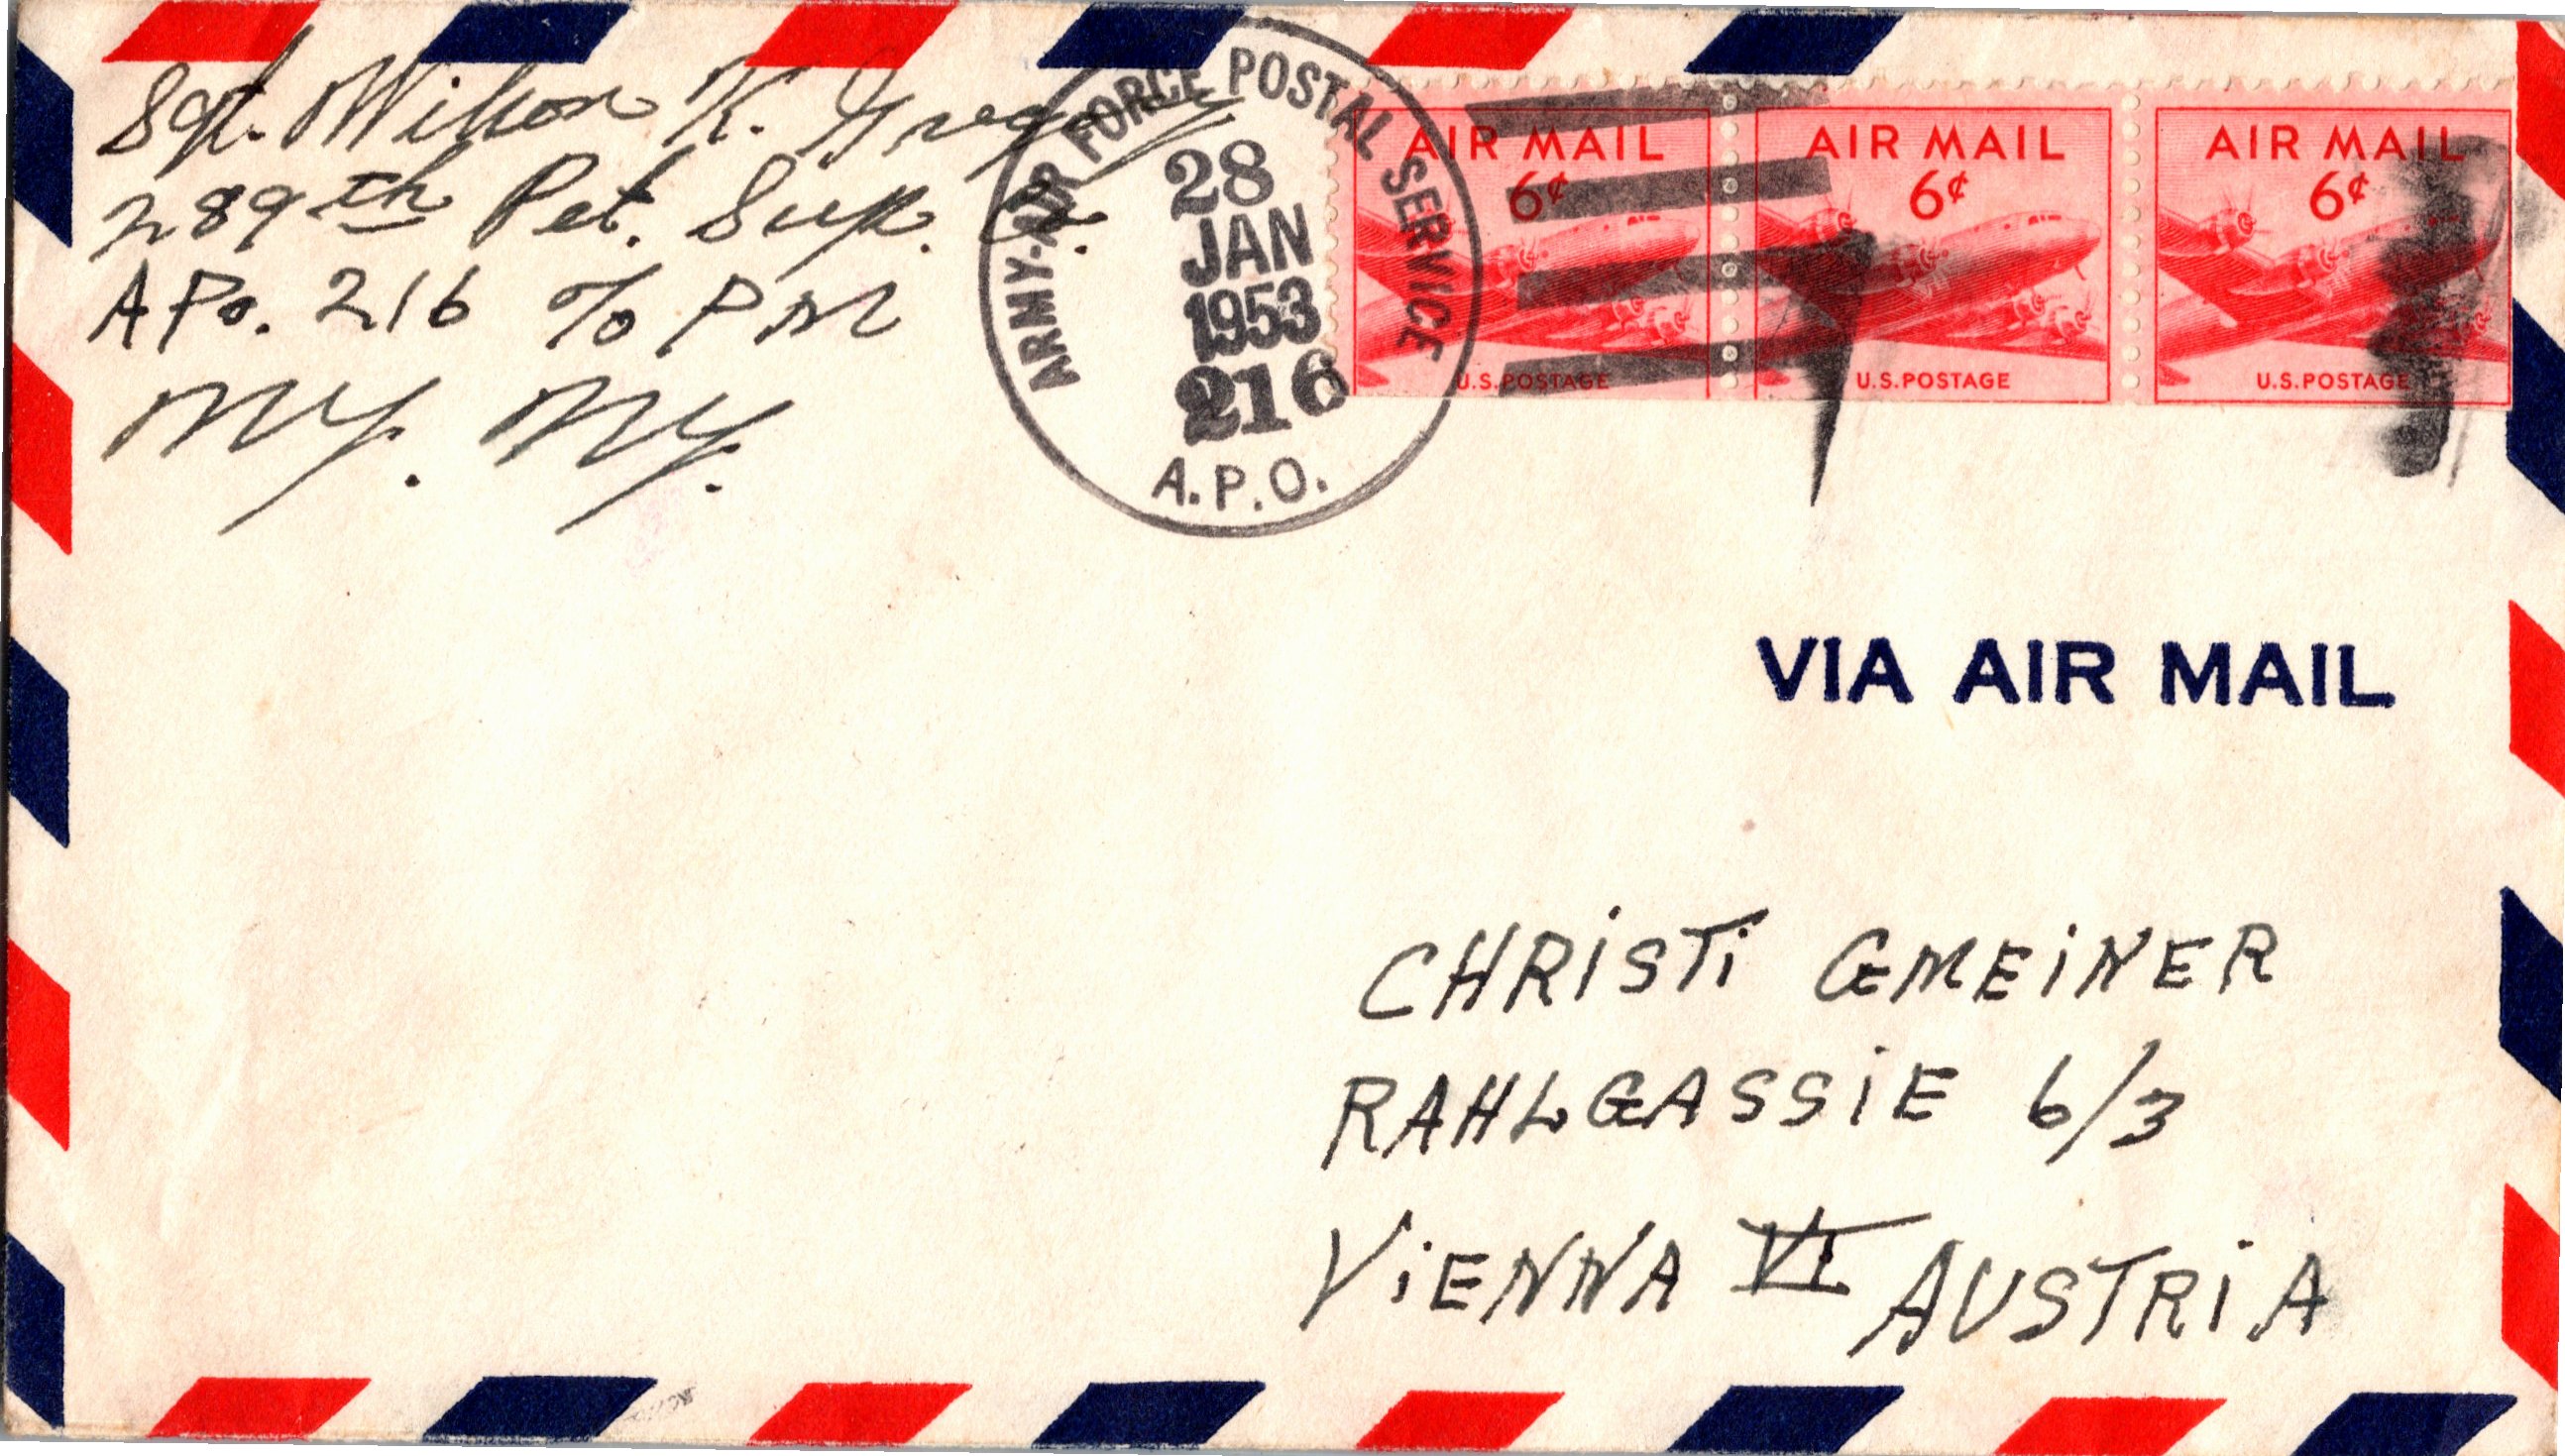 Sgt. Wilson K. Gregory
289th Pet. Sup. Co.
APo. 216 c/o PM
NY. NY.
ARMY-AIR FORCE POSTAL SERVICE
28
JAN
1953
216
A.P.O.
AIR MAIL
6¢
U.S.POSTAGE
AIR MAIL
6¢
U.S.POSTAGE
AIR MAIL
6¢
U.S.POSTAGE
VIA AIR MAIL
CHRiSTi GMEiNER
RAHLGASSiE 6/3
ViENNA VI AUSTRiA